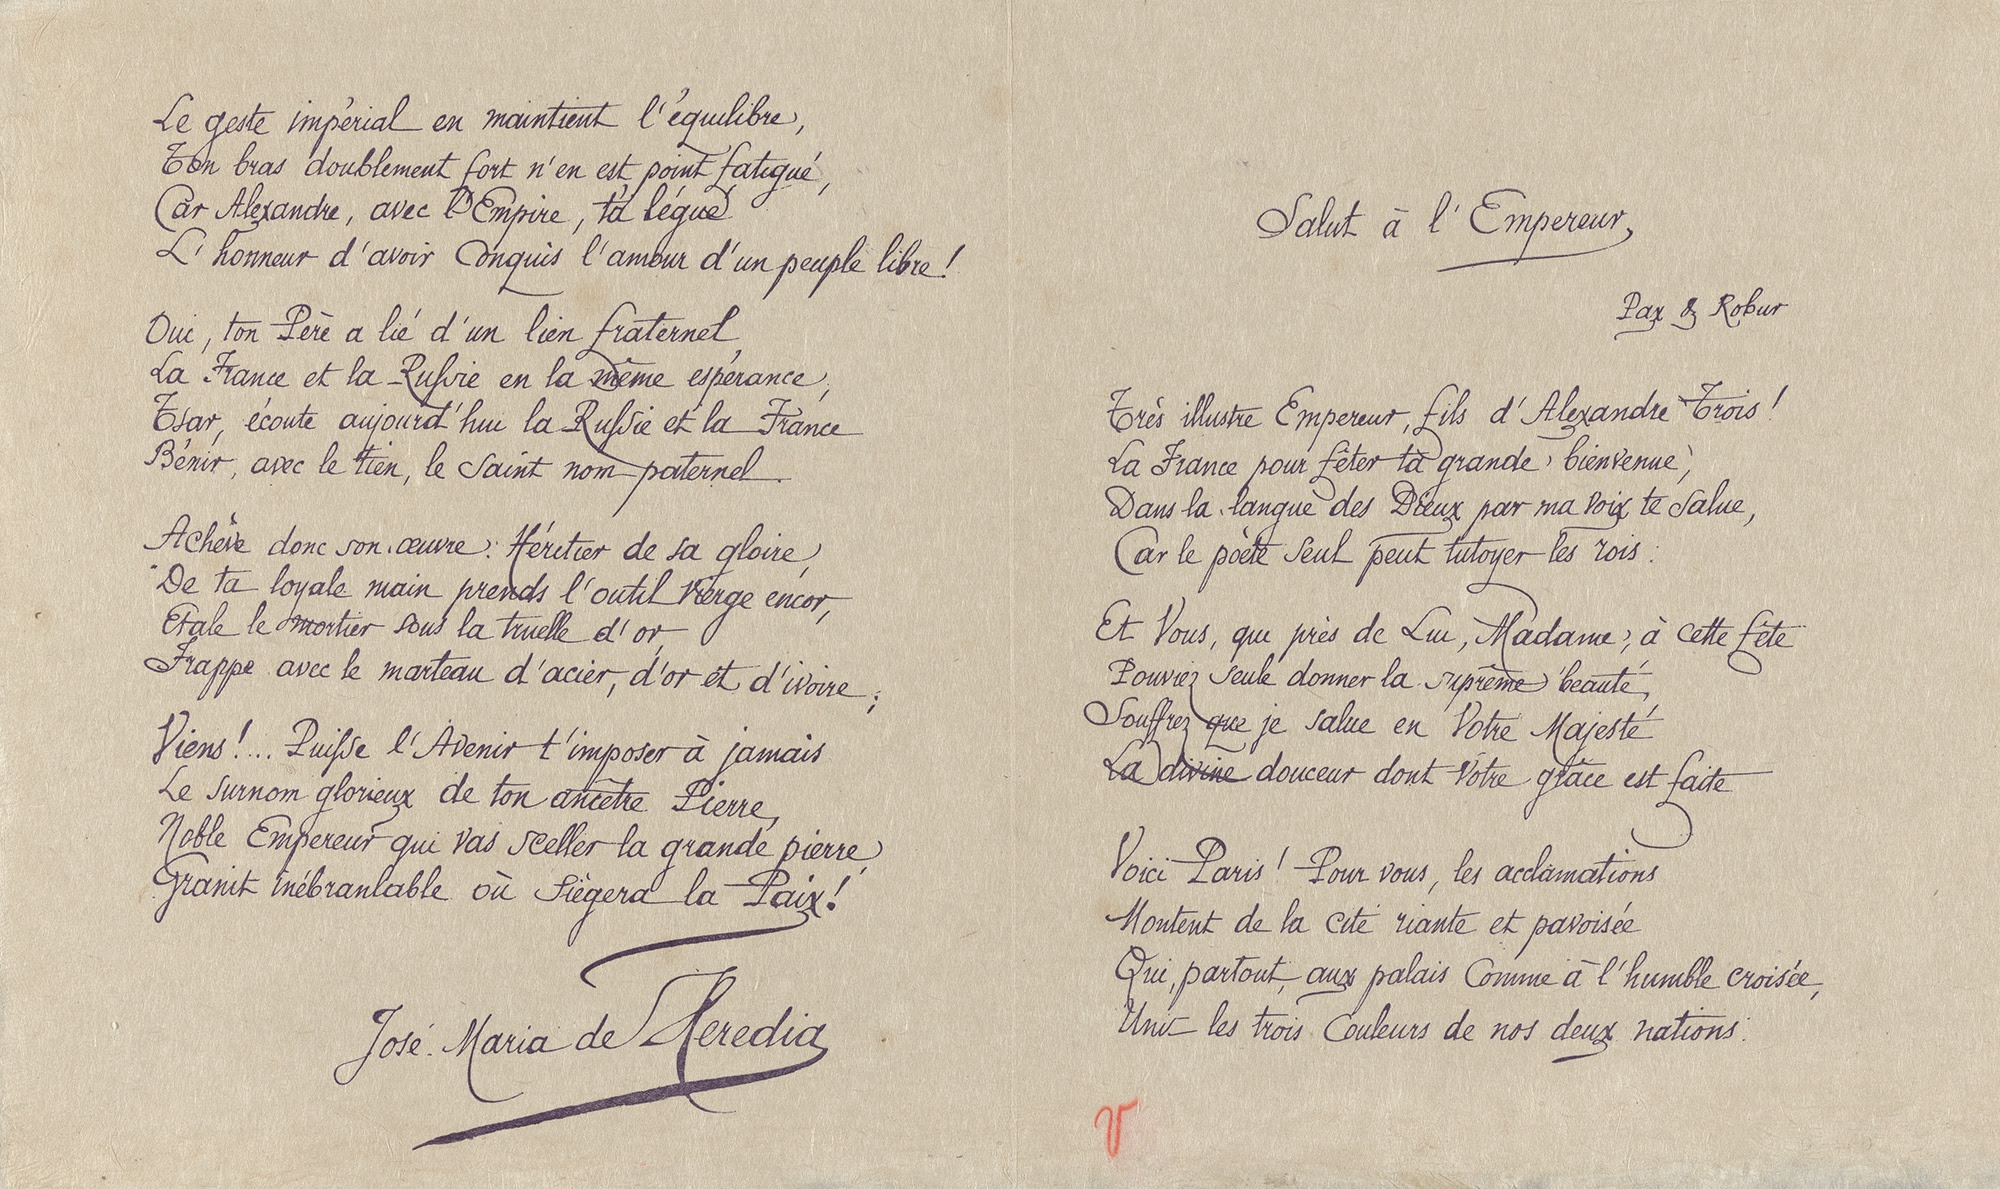 Le geste impérial en maintient l'équilibre,
Ton bras doublement fort n'en est point fatigué,
Car Alexandre, avec l'Empire, t'a légué
L'honneur d'avoir Conquis l'amour d'un peuple libre !
Oui, ton Père a lié d'un lien fraternel
La France et la Russie en la même espérance,
Tsar, écoute aujourd'hui la Russie et la France
Bénir, avec le tien, le Saint nom paternel.
Achève donc son œuvre. Héritier de sa gloire,
De ta loyale main prends l'outil Vierge encor,
Etale le mortier sous la truelle d'or,
Frappe avec le marteau d'acier, d'or et d'ivoire ;
Viens !... Puisse l'Avenir t'imposer à jamais
Le surnom glorieux de ton ancêtre Pierre,
Noble Empereur qui vas sceller la grande pierre
Granit inébranlable où Siègera la Paix !
José-Maria de Heredia
Salut à l'Empereur,
Pax & Robur
Très illustre Empereur, fils d'Alexandre Trois !
La France pour fêter ta grande bienvenue,
Dans la langue des Dieux par ma voix te salue,
Car le poète seul peut tutoyer les rois.
Et Vous, qui près de Lui, Madame, à cette fête
Pouviez seule donner la suprême beauté,
Souffrez que je salue en Votre Majesté
La divine douceur dont Votre grâce est faite
Voici Paris ! Pour vous, les acclamations
Montent de la cité riante et pavoisée
Qui, partout, aux palais Comme à l'humble croisée,
Unit les trois Couleurs de nos deux nations.
V